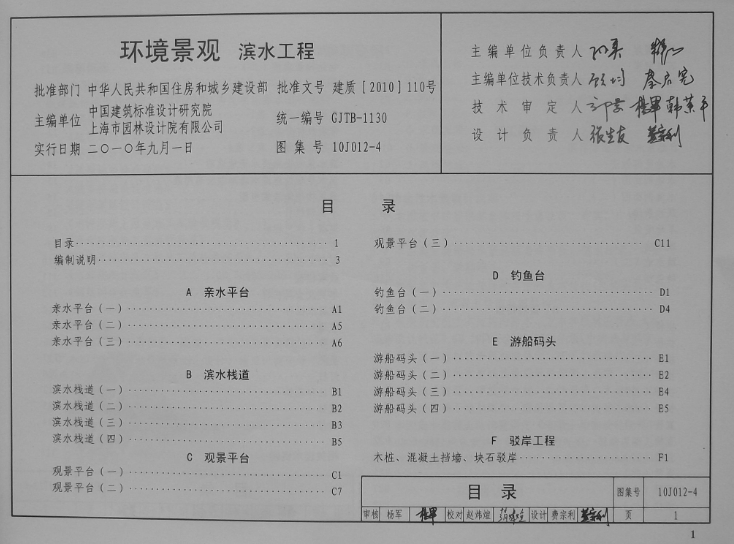 环境景观 滨水工程
批准部门 中华人民共和国住房和城乡建设部 批准文号 建质[2010]110号
主编单位 中国建筑标准设计研究院
上海市园林设计院有限公司
统一编号 GJTB-1130
实行日期 二○一○年九月一日 图集号 10J012-4
主编单位负责人
主编单位技术负责人
技术审定人
设计负责人
目 录
目录 1
编制说明 3
A 亲水平台
亲水平台(一) A1
亲水平台(二) A5
亲水平台(三) A6
B 滨水栈道
滨水栈道(一) B1
滨水栈道(二) B2
滨水栈道(三) B3
滨水栈道(四) B5
C 观景平台
观景平台(一) C1
观景平台(二) C7
观景平台(三) C11
D 钓鱼台
钓鱼台(一) D1
钓鱼台(二) D4
E 游船码头
游船码头(一) E1
游船码头(二) E2
游船码头(三) E4
游船码头(四) E5
F 驳岸工程
木桩、混凝土挡墙、块石驳岸 F1
目 录 图集号 10J012-4
审核 杨军 校对 赵炜煊 设计 费宗利 页 1
1